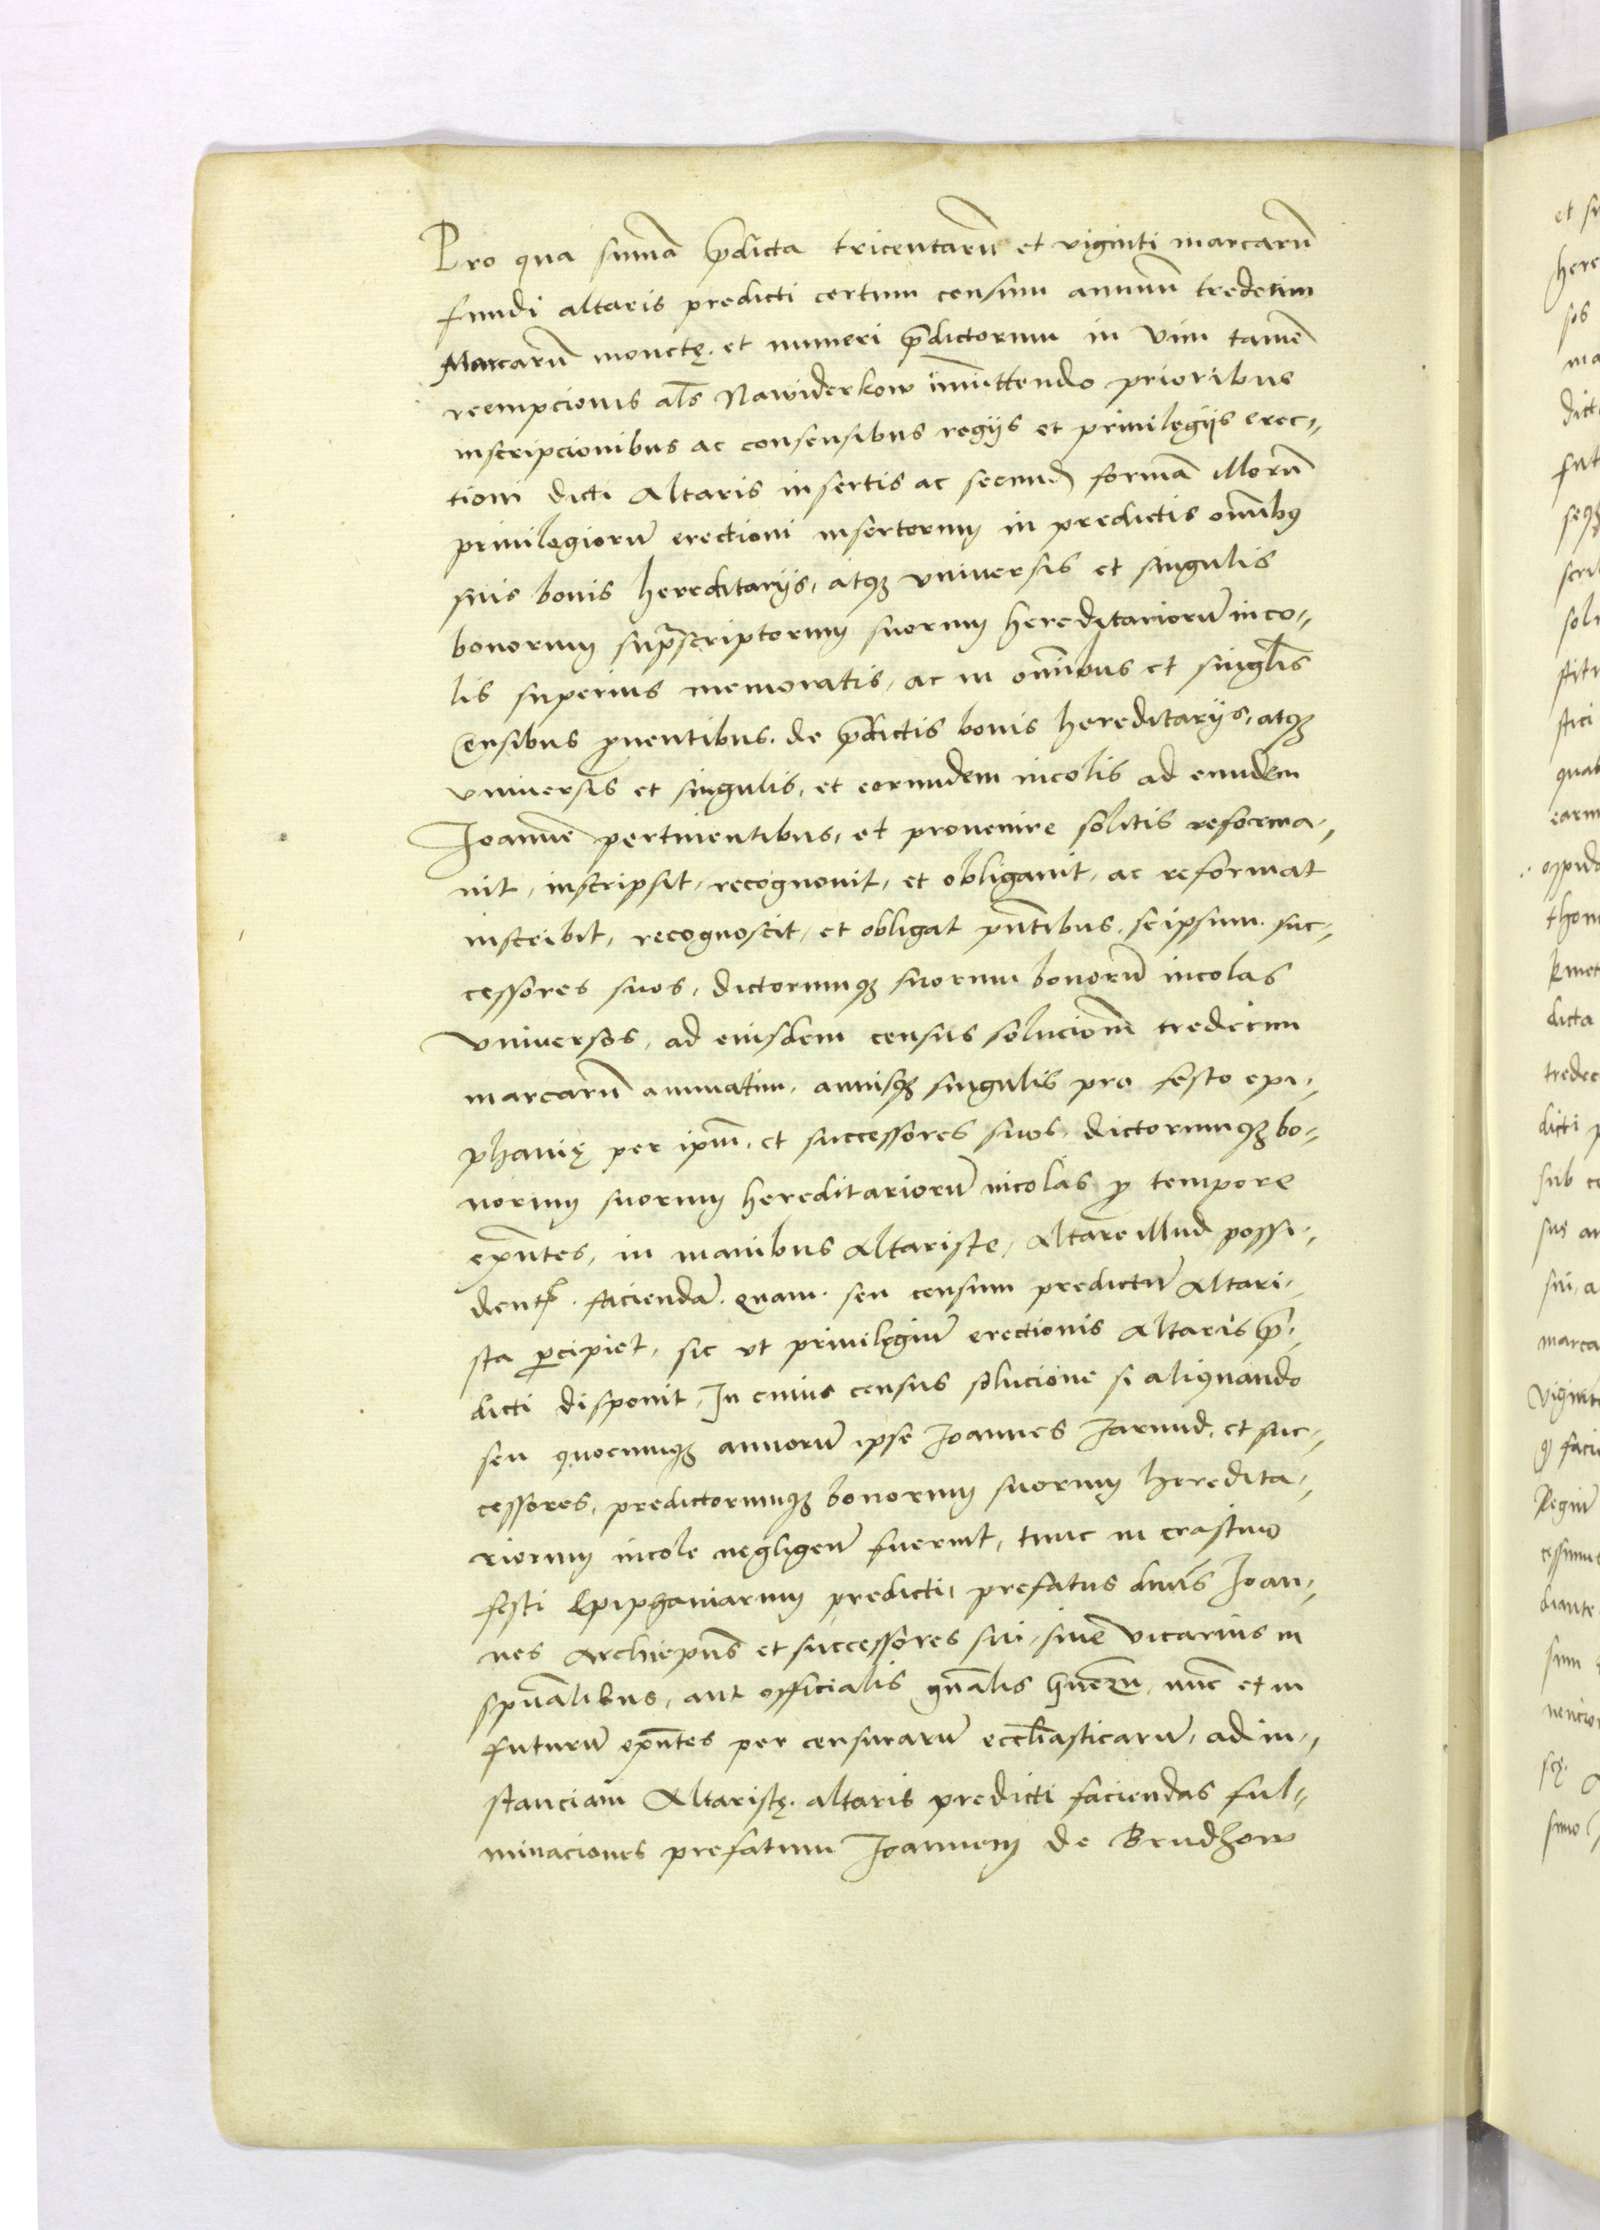 Pro qua sumā p̄dicta tricentarū et viginti marcarū
fundi altaris predicti certum censum annuū tredecim
Marcarū monetę. et numeri p̄dictorum in vim tamē
reempcionis als Nawiderkow īmittendo prioribus
inscripcionibus ac consensibus regijs et priuilęgijs erec-
tioni dicti Altaris insertis ac secund formā illorū
priuilęgiorū erectioni insertorum in predictis omībus
suis bonis hereditarijs, atqꝫ vniuersis et singulis
bonorum sup̄scriptorum suorum hereditariorū inco-
lis superius memoratis, ac in omībus et singlis
censibus ꝓuentibus. de p̄dictis bonis hereditarijs, atqꝫ
vniuersis et singulis, et eorundem incolis ad eundem
Joannē pertinentibus, et prouenire solitis reforma-
uit, inscripsit, recognouit, et obligauit, ac reformat
inscribit, recognoscit, et obligat pn̄tibus. seipsum. suc-
cessores suos, dictorumqꝫ suorum bonorū incolas
vniuersos, ad eiusdem census soluciōm tredecim
marcarū annuatim, annisqꝫ singulis pro festo epi-
phanię per ipm̄, et successores suos, dictorumqꝫ bo-
norum suorum hereditariorū incolas ꝓ tempore
exn̄tes, in manibus Altariste, Altare illud possi-
dent. faciendā. quam. seu censum predictū Altari-
sta ꝑcipiet, sic vt priuilęgiū erectionis Altaris p̄-
dicti disponit, In cuius census solucione si aliquando
seu quocumqꝫ annorū ipse Joannes Jarand, et suc-
cessores, predictorumqꝫ bonorum suorum heredita-
riorum incole negligen fuerint, tunc in crastino
festi Epiphaniarum predicti, prefatus dn̄s Joan-
nes Archiep̄us et successores sui, siue vicarius in
spūalibus, aut officialis gn̄alis Gneżn, nūc et in
futurū exn̄tes per censurarū ecclīasticarū, ad in-
stanciam Altaristę. altaris predicti faciendas ful-
minaciones prefatum Joannem de Brudzow